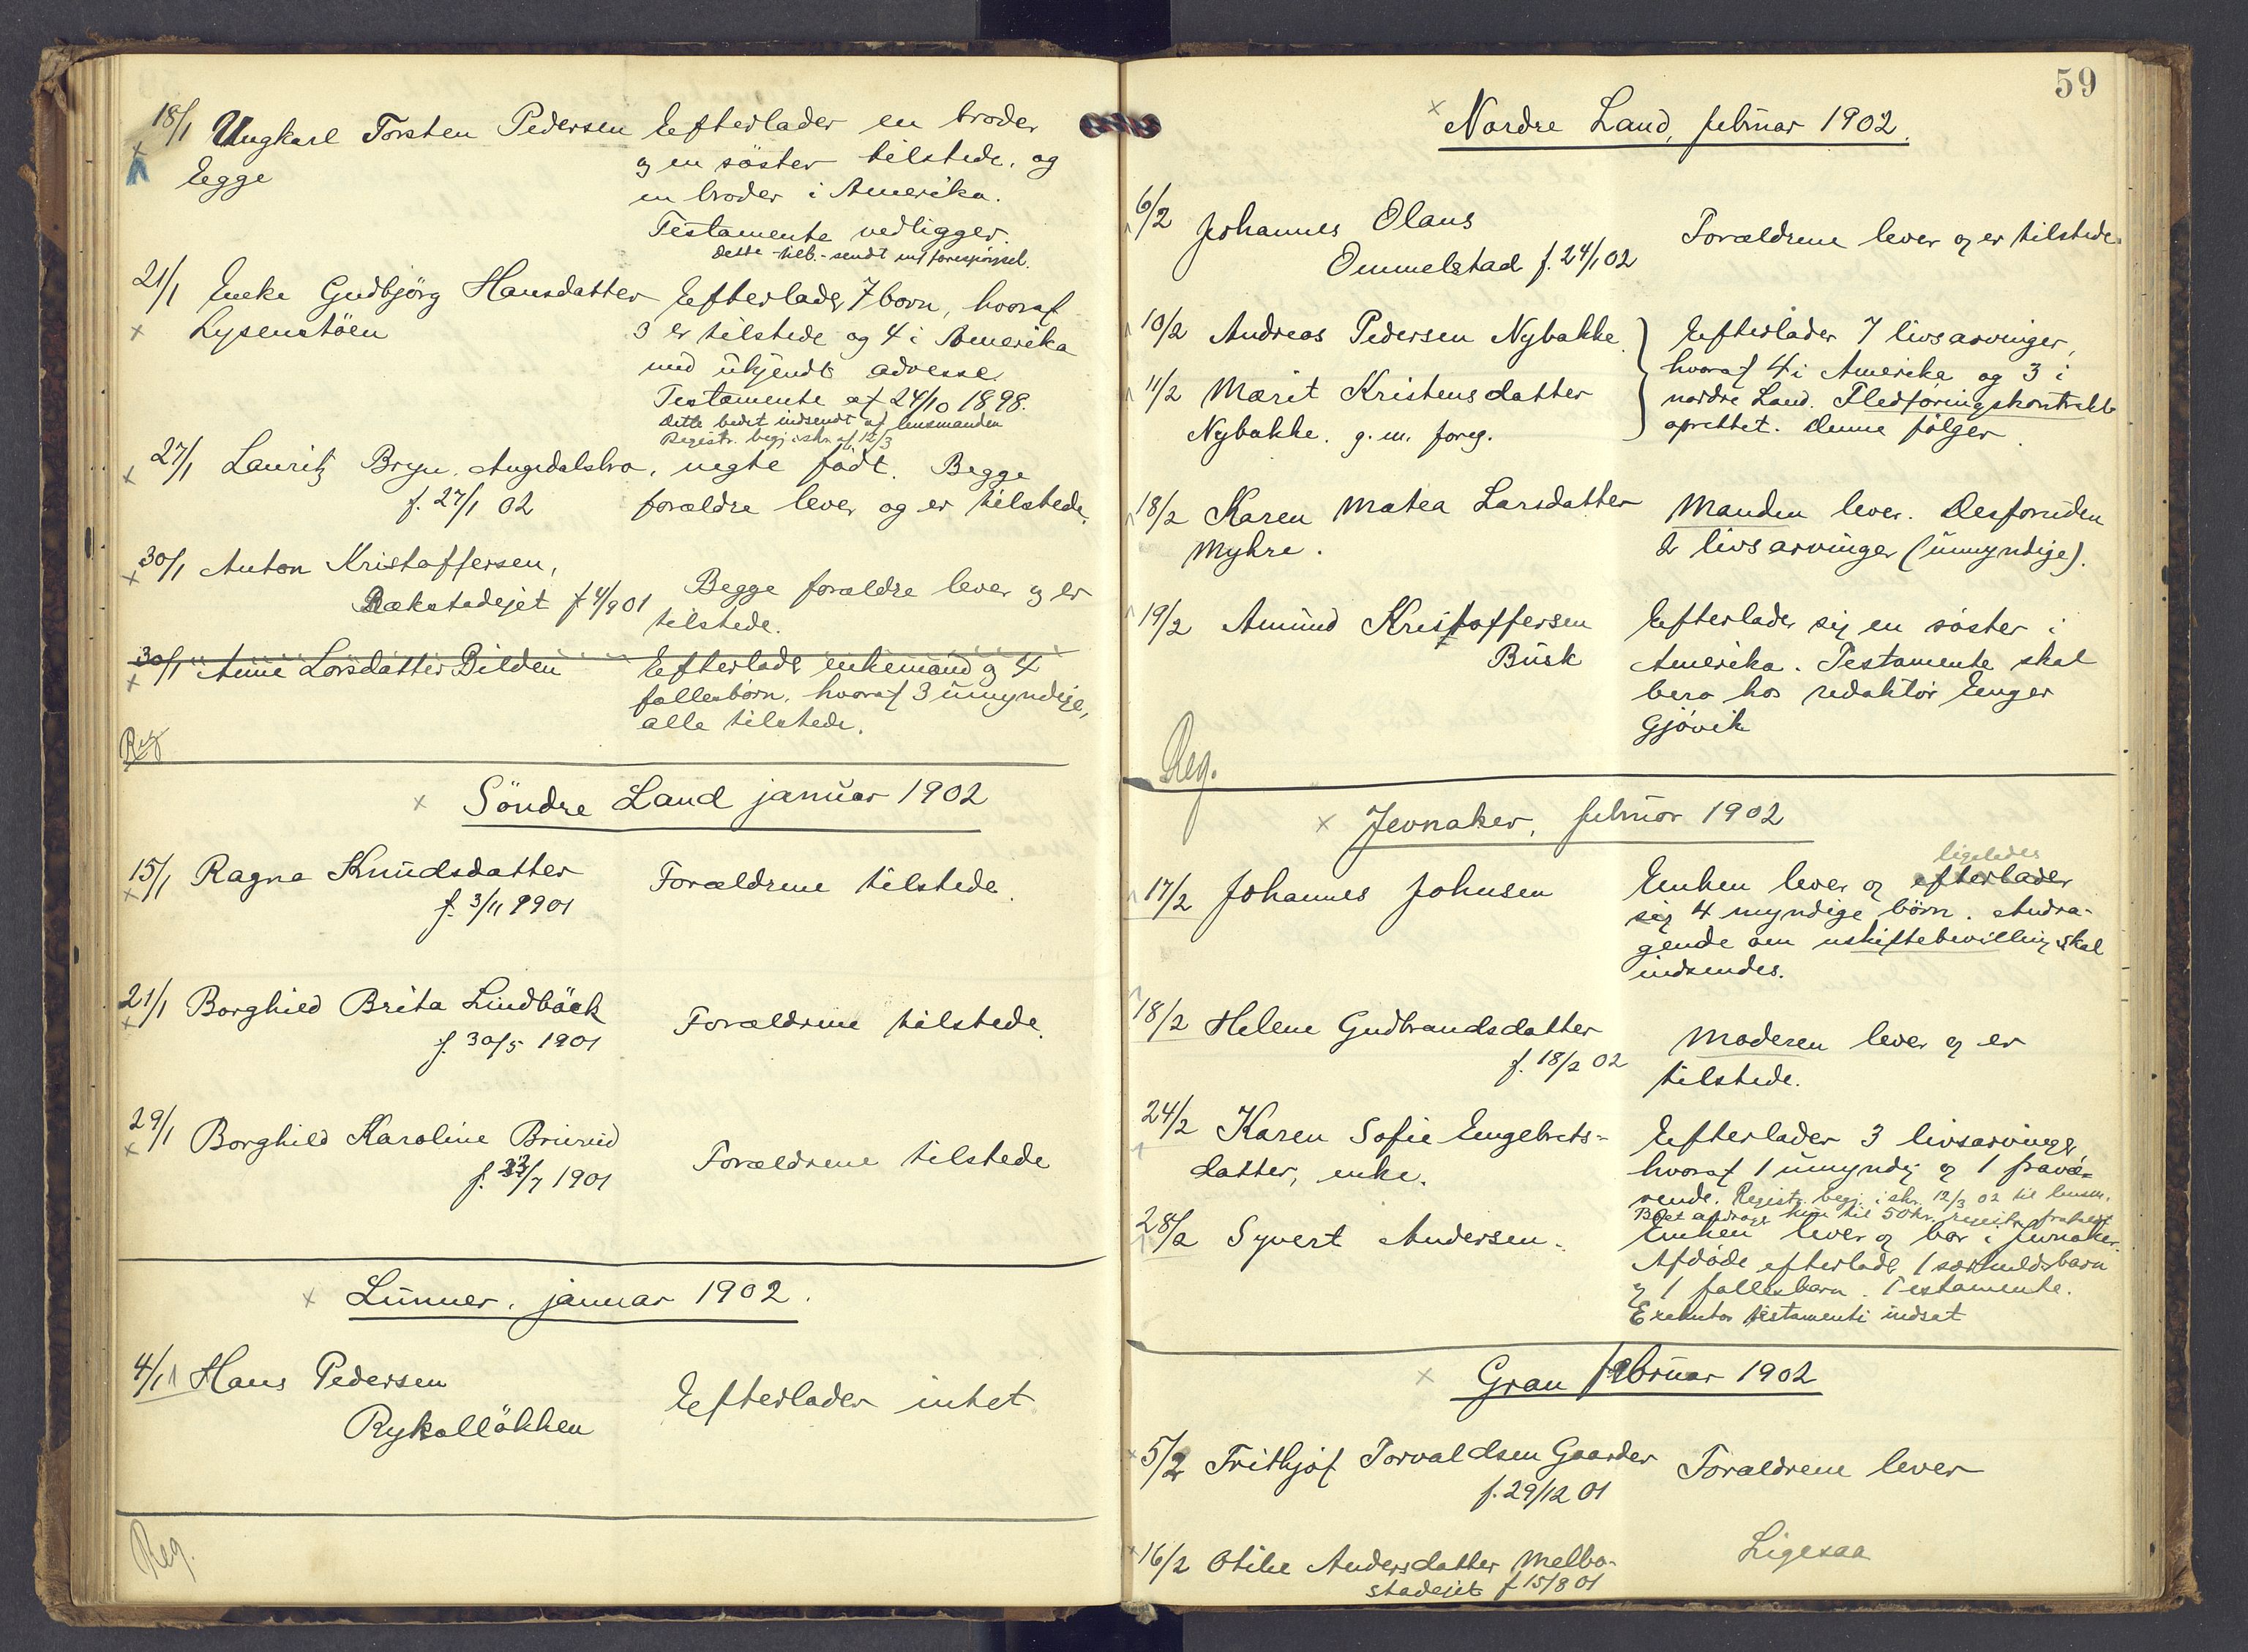 18/1 Ungkarl Torsten Pedersen Efterlader en broder
Egge og en söster tilstede, og
en broder i Amerika.
Testamente vedligger.
Dette tilb. sendt m/ forespörgsel.
21/1 Enke Gudbjörg Hansdatter Efterlader 7 born, hvoraf
Lysenstöen 3 er tilstede og 4 i Amerika
med ukjendt adresse.
Testamente af 24/10 1898.
Dette bedet indsendt af lensmanden
Registr. begj. i skr. af 12/3
27/1 Lauritz Bryn, , ægte födt. Begge
f. 27/1 02 forældre lever og er tilstede.
30/1 Anton Kristoffersen,
Bækstadejet f 4/9 01 Begge forældre lever og er
tilstede.
30/1 Anne Larsdatter Bilden Efterlader enkemand og 4
fællesbörn, hvoraf 3 umyndige,
alle tilstede.
Reg
Söndre Land januar 1902
15/1 Ragna Knudsdatter Forældrene tilstede.
f. 3/11 1901
21/1 Borghild Brita Lindbäck Forældrene tilstede.
f. 30/5 1901
29/1 Borghild Karoline Forældrene tilstede
f. 23/7 1901
Lunner, januar 1902.
4/1 Hans Pedersen Efterlader intet.
Rykollökken
Reg.
59
Nordre Land, februar 1902.
6/2 Johannes Olaus Forældrene lever og er tilstede.
Ommelstad f. 24/1 02
10/2 Andreas Pedersen Nybakke. Efterlader 7 livsarvinger,
hvoraf 4 i Amerika og 3 i
11/2 Marit Kristensdatter nordre Land. Fledföringskontrakt
Nybakke. g. m. foreg. oprettet. Denne fölger.
18/2 Karen Matea Larsdatter Manden lever. Desforuden
Myhre. 2 livsarvinger (umyndige).
19/2 Amund Kristoffersen Efterlader sig en söster i
Busk Amerika. Testamente skal
bero hos redaktör Enger
Gjövik
Reg.
Jevnaker, februar 1902
ligeledes
17/2 Johannes Johnsen Enken lever og efterlader
sig 4 myndige börn. Andra-
gende om uskiftebevilling skal
indsendes.
18/2 Helene Gudbrandsdatter Moderen lever og er
f. 18/2 02 tilstede.
24/2 Karen Sofie Engebrets- Efterlader 3 livsarvinger,
datter, enke. hvoraf 1 umyndig og 1 fravæ-
rende. Registr. begj. i skr. 12/3 02 til lensm.
Boet kun til 50 kr.
28/2 Syvert Andersen. Enken lever og bor i Jevnaker.
Afdöde efterlader 1 særkuldsbarn
og 1 fællesbarn. Testamente.
Exekutor testamenti indsat
Gran februar 1902
5/2 Frithjof Torvaldsen Gaarder Forældrene lever
f. 29/12 01
16/2 Otilie Andersdatter Melbo- Ligesaa
stadejet f 15/8 01